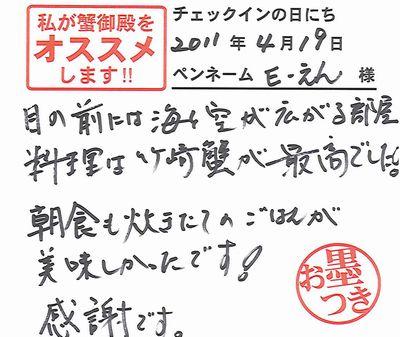 私が蟹御殿を
オススメ
します!!
チェックインの日にち
2011年4月19日
ペンネーム E-えん 様
目の前には海と空が広がる部屋
料理は竹崎蟹が最高でした。
朝食も炊きたてのごはんが
美味しかったです!
感謝です。
お墨つき